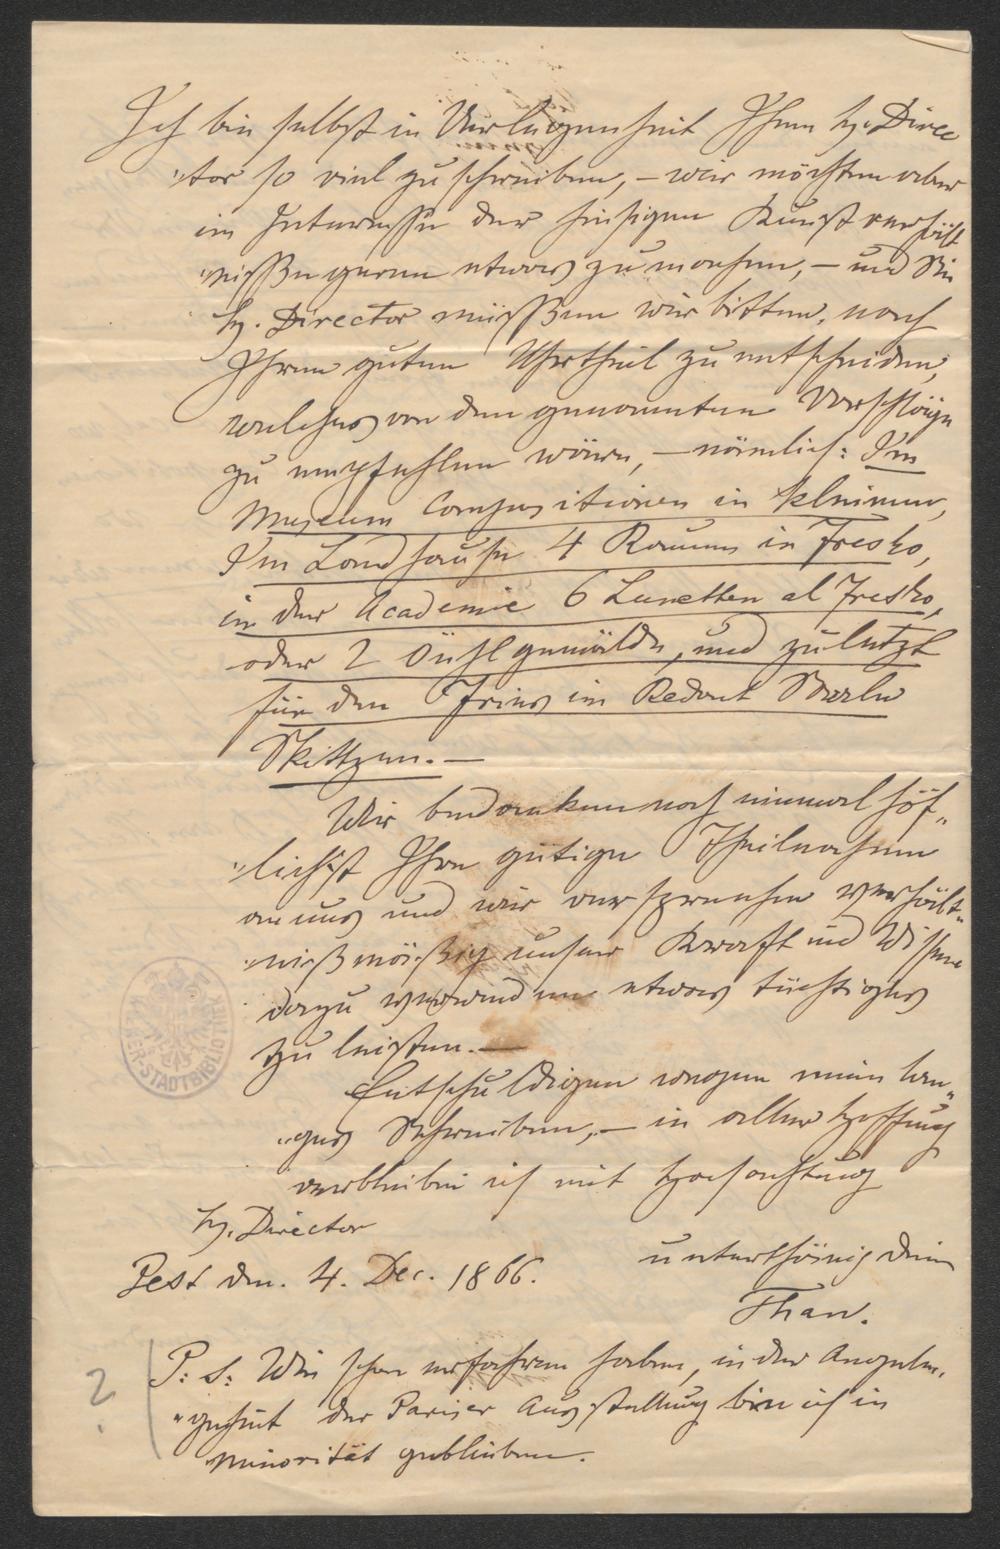 Ich bin selbst in Verlegenheit Ihnen H. Direc
"tor so viel zu schreiben, – wir möchten aber
im Interesse der hiesigen Kunstverhält
"nisse gerne etwas zu machen, – und Sie
H. Director müssen wir bitten, nach
Ihren guten Uhrtheil zu entscheiden,
welches von den genannten Vorschläge
zu empfehlen wären, – nämlich: Im
Museum Compositionen in kleinerer,
Im Landhause 4 Raume in Fresko,
in der Academie 6 Lunetten al Fresko,
oder 2 Oühlgemälde, und zuletzt
für den Fries im Redout Saale
Skittzen. –
Wir bedanken noch einmal höf„
"lichst Ihre gütige Theilnahme
an uns und wir versprechen verhält„
"nißmäßig unsere Kraft und Wissen
dazu verwenden etwas tüchtiges
zu leisten. –
Entschuldigen wegen mein lan„
"ges Schreiben, – in aller Hoffnug
verbleibe ich mit Hochachtug
H. Director
unterthänig
Pest den. 4. Dec. 1866.
Than.
P: S: Wie schon erfahren haben, in der Angele„
"genheit der Pariser Ausstellug bin ich in
minorität geblieben.
?
WIENER-STADTBIBLIOTHEK